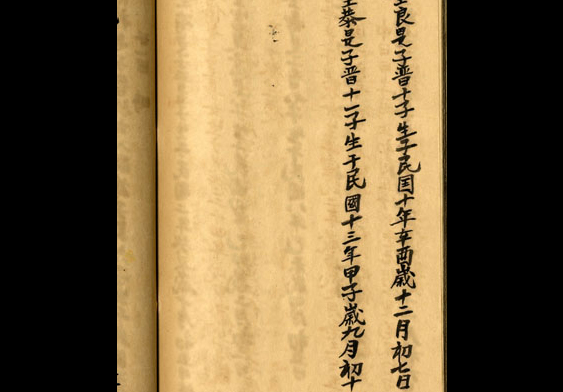 良是子普十子生于民国十年辛酉歲十二月初七日
恭是子普十一子生于民國十三年甲子歲九月初十